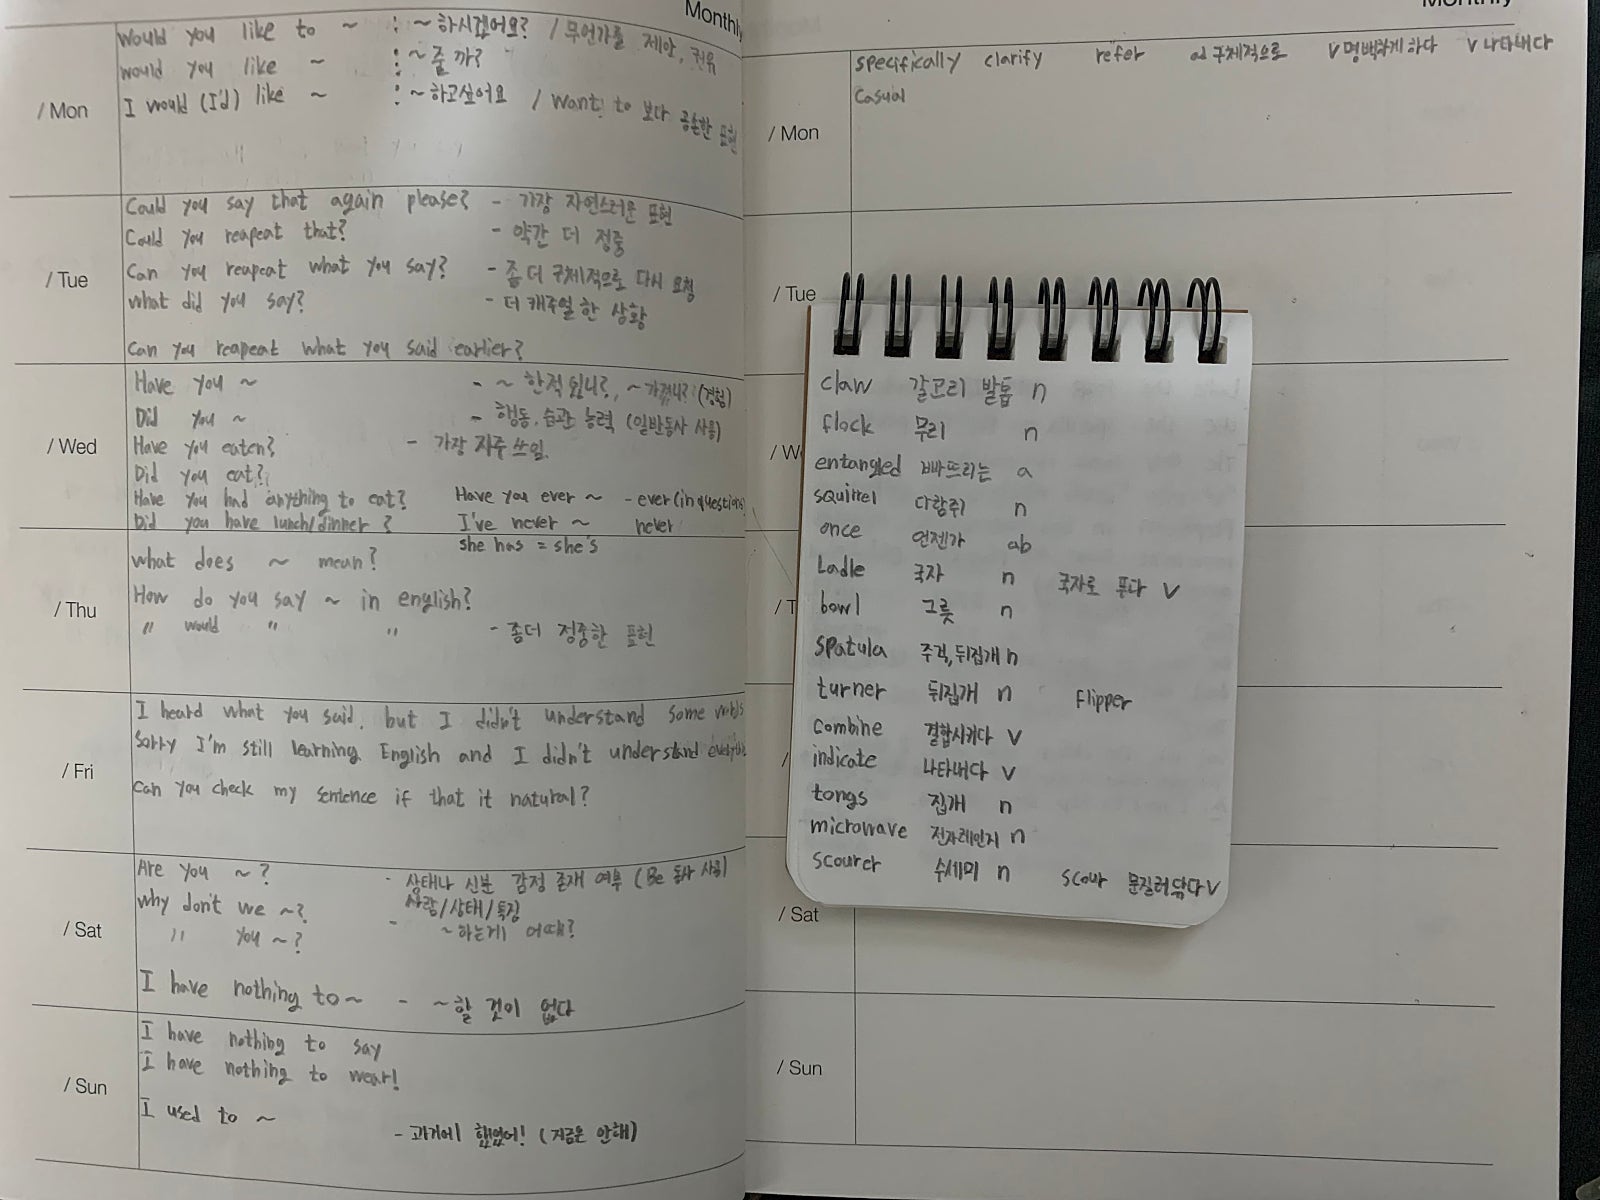 Monthly
/ Mon
Would you like to ~ : ~하시겠어요? / 무언가를 제안, 권유
would you like ~ : ~줄까?
I would (I'd) like ~ : ~하고싶어요 / want to 보다 공손한 표현
/ Tue
Could you say that again please? - 가장 자연스러운 표현
Could you reapeat that? - 약간 더 정중
Can you reapeat what you say? - 좀 더 구체적으로 다시 요청
what did you say? - 더 캐주얼한 상황
Can you reapeat what you said earlier?
/ Wed
Have you ~ - ~ 한적 있니?, ~가졌니? (경험)
Did you ~ - 행동, 습관 능력 (일반동사 사용)
Have you eaten? - 가장 자주 쓰임.
Did you eat?
Have you had anything to eat? Have you ever ~ - ever (in questions)
Did you have lunch/dinner? I've never ~ never
she has = she's
/ Thu
what does ~ mean?
How do you say ~ in english?
" would " " - 좀더 정중한 표현
/ Fri
I heard what you said. but I didn't understand some words
Sorry I'm still learning English and I didn't understand everything
Can you check my sentence if that it natural?
/ Sat
Are you ~? - 상태나 신분 감정 존재 여부 (Be 동사 사용)
사람/상태/특징
why don't we ~? - ~하는게 어때?
" you ~?
I have nothing to ~ - ~할 것이 없다
/ Sun
I have nothing to say
I have nothing to wear!
I used to ~
- 과거에 했었어! (지금은 안해)
Monthly
/ Mon
specifically clarify refer ad 구체적으로 v 명백하게 하다 v 나타내다
casual
/ Tue
/ W
/ T
/
/ Sat
/ Sun
claw 갈고리 발톱 n
flock 무리 n
entangled 빠뜨리는 a
squirrel 다람쥐 n
once 언젠가 ab
Ladle 국자 n 국자로 푸다 v
bowl 그릇 n
spatula 주걱,뒤집개 n
turner 뒤집개 n Flipper
combine 결합시키다 v
indicate 나타내다 v
tongs 집개 n
microwave 전자레인지 n
scourer 수세미 n scour 문질러닦다 v